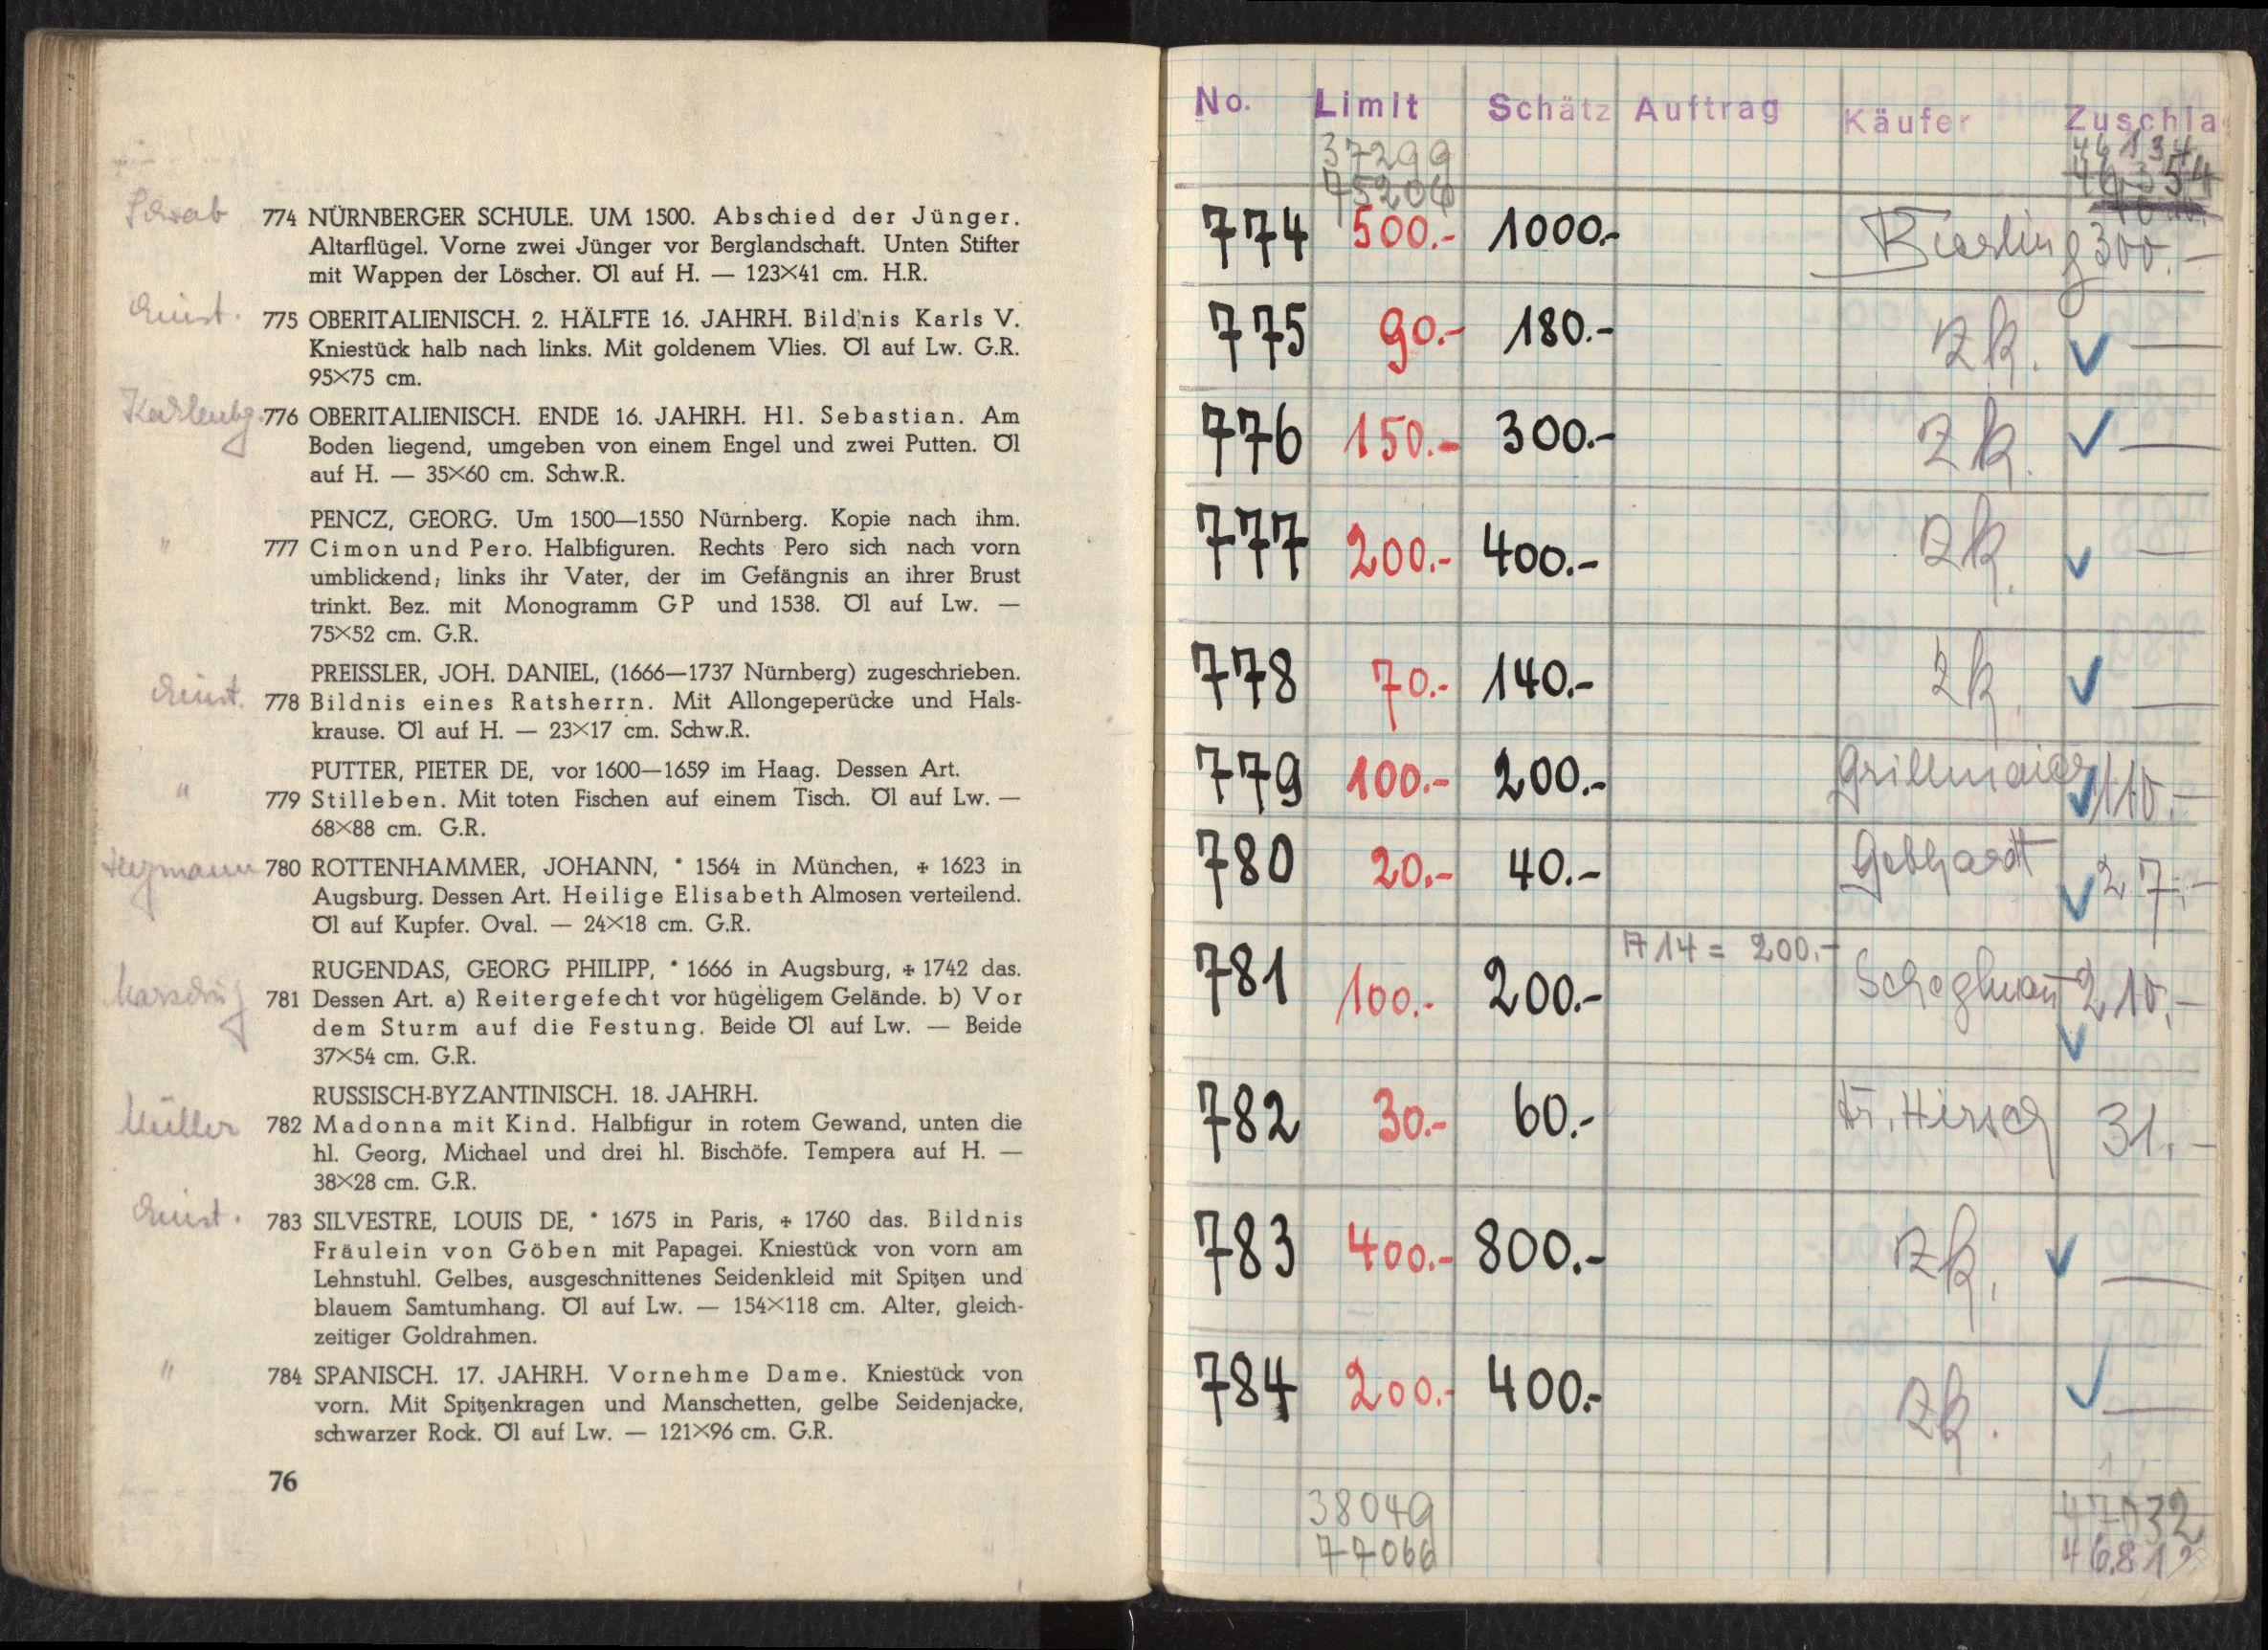 774 NÜRNBERGER SCHULE. UM 1500. Abschied der Jünger.
Altarflügel. Vorne zwei Jünger vor Berglandschaft. Unten Stifter
mit Wappen der Löscher. Öl auf H. — 123×41 cm. H.R.
775 OBERITALIENISCH. 2. HÄLFTE 16. JAHRH. Bildnis Karls V.
Kniestück halb nach links. Mit goldenem Vlies. Öl auf Lw. G.R.
95×75 cm.
776 OBERITALIENISCH. ENDE 16. JAHRH. Hl. Sebastian. Am
Boden liegend, umgeben von einem Engel und zwei Putten. Öl
auf H. — 35×60 cm. Schw.R.
PENCZ, GEORG. Um 1500—1550 Nürnberg. Kopie nach ihm.
" 777 Cimon und Pero. Halbfiguren. Rechts Pero sich nach vorn
umblickend; links ihr Vater, der im Gefängnis an ihrer Brust
trinkt. Bez. mit Monogramm GP und 1538. Öl auf Lw. —
75×52 cm. G.R.
PREISSLER, JOH. DANIEL, (1666—1737 Nürnberg) zugeschrieben.
778 Bildnis eines Ratsherrn. Mit Allongeperücke und Hals-
krause. Öl auf H. — 23×17 cm. Schw.R.
PUTTER, PIETER DE, vor 1600—1659 im Haag. Dessen Art.
" 779 Stilleben. Mit toten Fischen auf einem Tisch. Öl auf Lw. —
68×88 cm. G.R.
780 ROTTENHAMMER, JOHANN, * 1564 in München, ✠ 1623 in
Augsburg. Dessen Art. Heilige Elisabeth Almosen verteilend.
Öl auf Kupfer. Oval. — 24×18 cm. G.R.
RUGENDAS, GEORG PHILIPP, * 1666 in Augsburg, ✠ 1742 das.
781 Dessen Art. a) Reitergefecht vor hügeligem Gelände. b) Vor
dem Sturm auf die Festung. Beide Öl auf Lw. — Beide
37×54 cm. G.R.
RUSSISCH-BYZANTINISCH. 18. JAHRH.
Müller 782 Madonna mit Kind. Halbfigur in rotem Gewand, unten die
hl. Georg, Michael und drei hl. Bischöfe. Tempera auf H. —
38×28 cm. G.R.
783 SILVESTRE, LOUIS DE, * 1675 in Paris, ✠ 1760 das. Bildnis
Fräulein von Göben mit Papagei. Kniestück von vorn am
Lehnstuhl. Gelbes, ausgeschnittenes Seidenkleid mit Spitzen und
blauem Samtumhang. Öl auf Lw. — 154×118 cm. Alter, gleich-
zeitiger Goldrahmen.
" 784 SPANISCH. 17. JAHRH. Vornehme Dame. Kniestück von
vorn. Mit Spitzenkragen und Manschetten, gelbe Seidenjacke,
schwarzer Rock. Öl auf Lw. — 121×96 cm. G.R.
76
No. Limit Schätz Auftrag Käufer Zuschla
37299
774 500.- 1000.- 300.-
775 90.- 180.- zk. ✓ —
776 150.- 300.- zk. ✓ —
777 200.- 400.- zk. ✓ —
778 70.- 140.- zk. ✓ —
779 100.- 200.- Grillmaier ✓ 110.-
780 20.- 40.- Gebhardt ✓ 27.-
781 100.- 200.- A 14 = 200.- 210.- ✓
782 30.- 60.- Dr. Hirsch 31.-
783 400.- 800.- zk. ✓ —
784 200.- 400.- zk. ✓ —
38049
77066
47132
46812